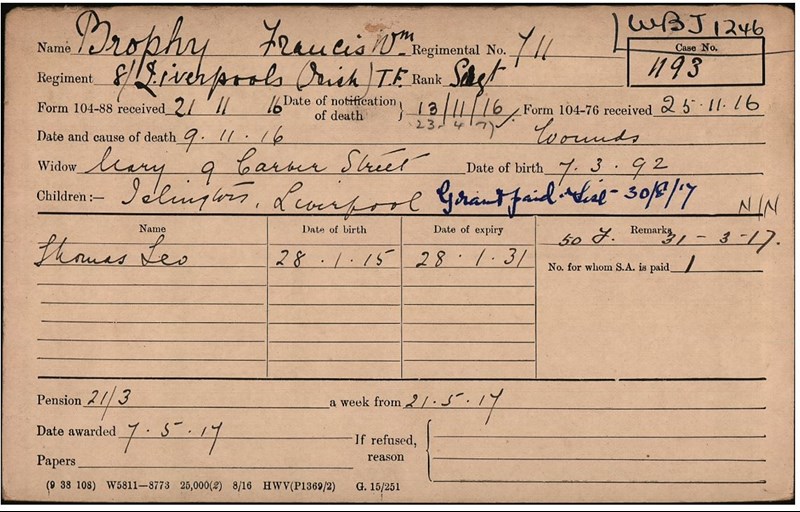 WBJ 1246
Name Brophy Francis Wm Regimental No. 711
Case No. 1193
Regiment 8/Liverpools (Irish) T.F. Rank Sergt
Form 104-88 received 21 11 16 Date of notification of death } 13/11/16 Form 104-76 received 25.11.16
23 4 17
Date and cause of death 9.11.16 Wounds
Widow Mary 9 Carver Street Date of birth 7.3.92
Children:— Islington, Liverpool Grant paid 30/8/17
N/N
Name Date of birth Date of expiry Remarks
50 F. 31-3-17.
Thomas Leo 28.1.15 28.1.31
No. for whom S.A. is paid 1
Pension 21/3 a week from 21.5.17
Date awarded 7.5.17
If refused, reason
Papers
(9 38 108) W5811—8773 25,000(2) 8/16 HWV(P1369/2) G. 15/251